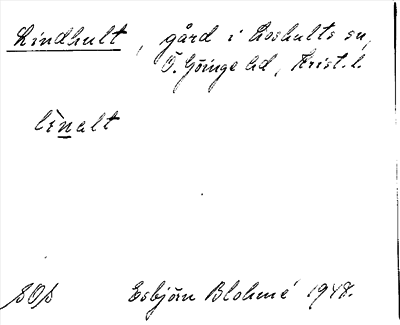 Lindhult, gård i Loshults sn,
Ö. Göinge hd, Krist. l.
lìnalt
SOS Esbjörn Blohmé 1948.